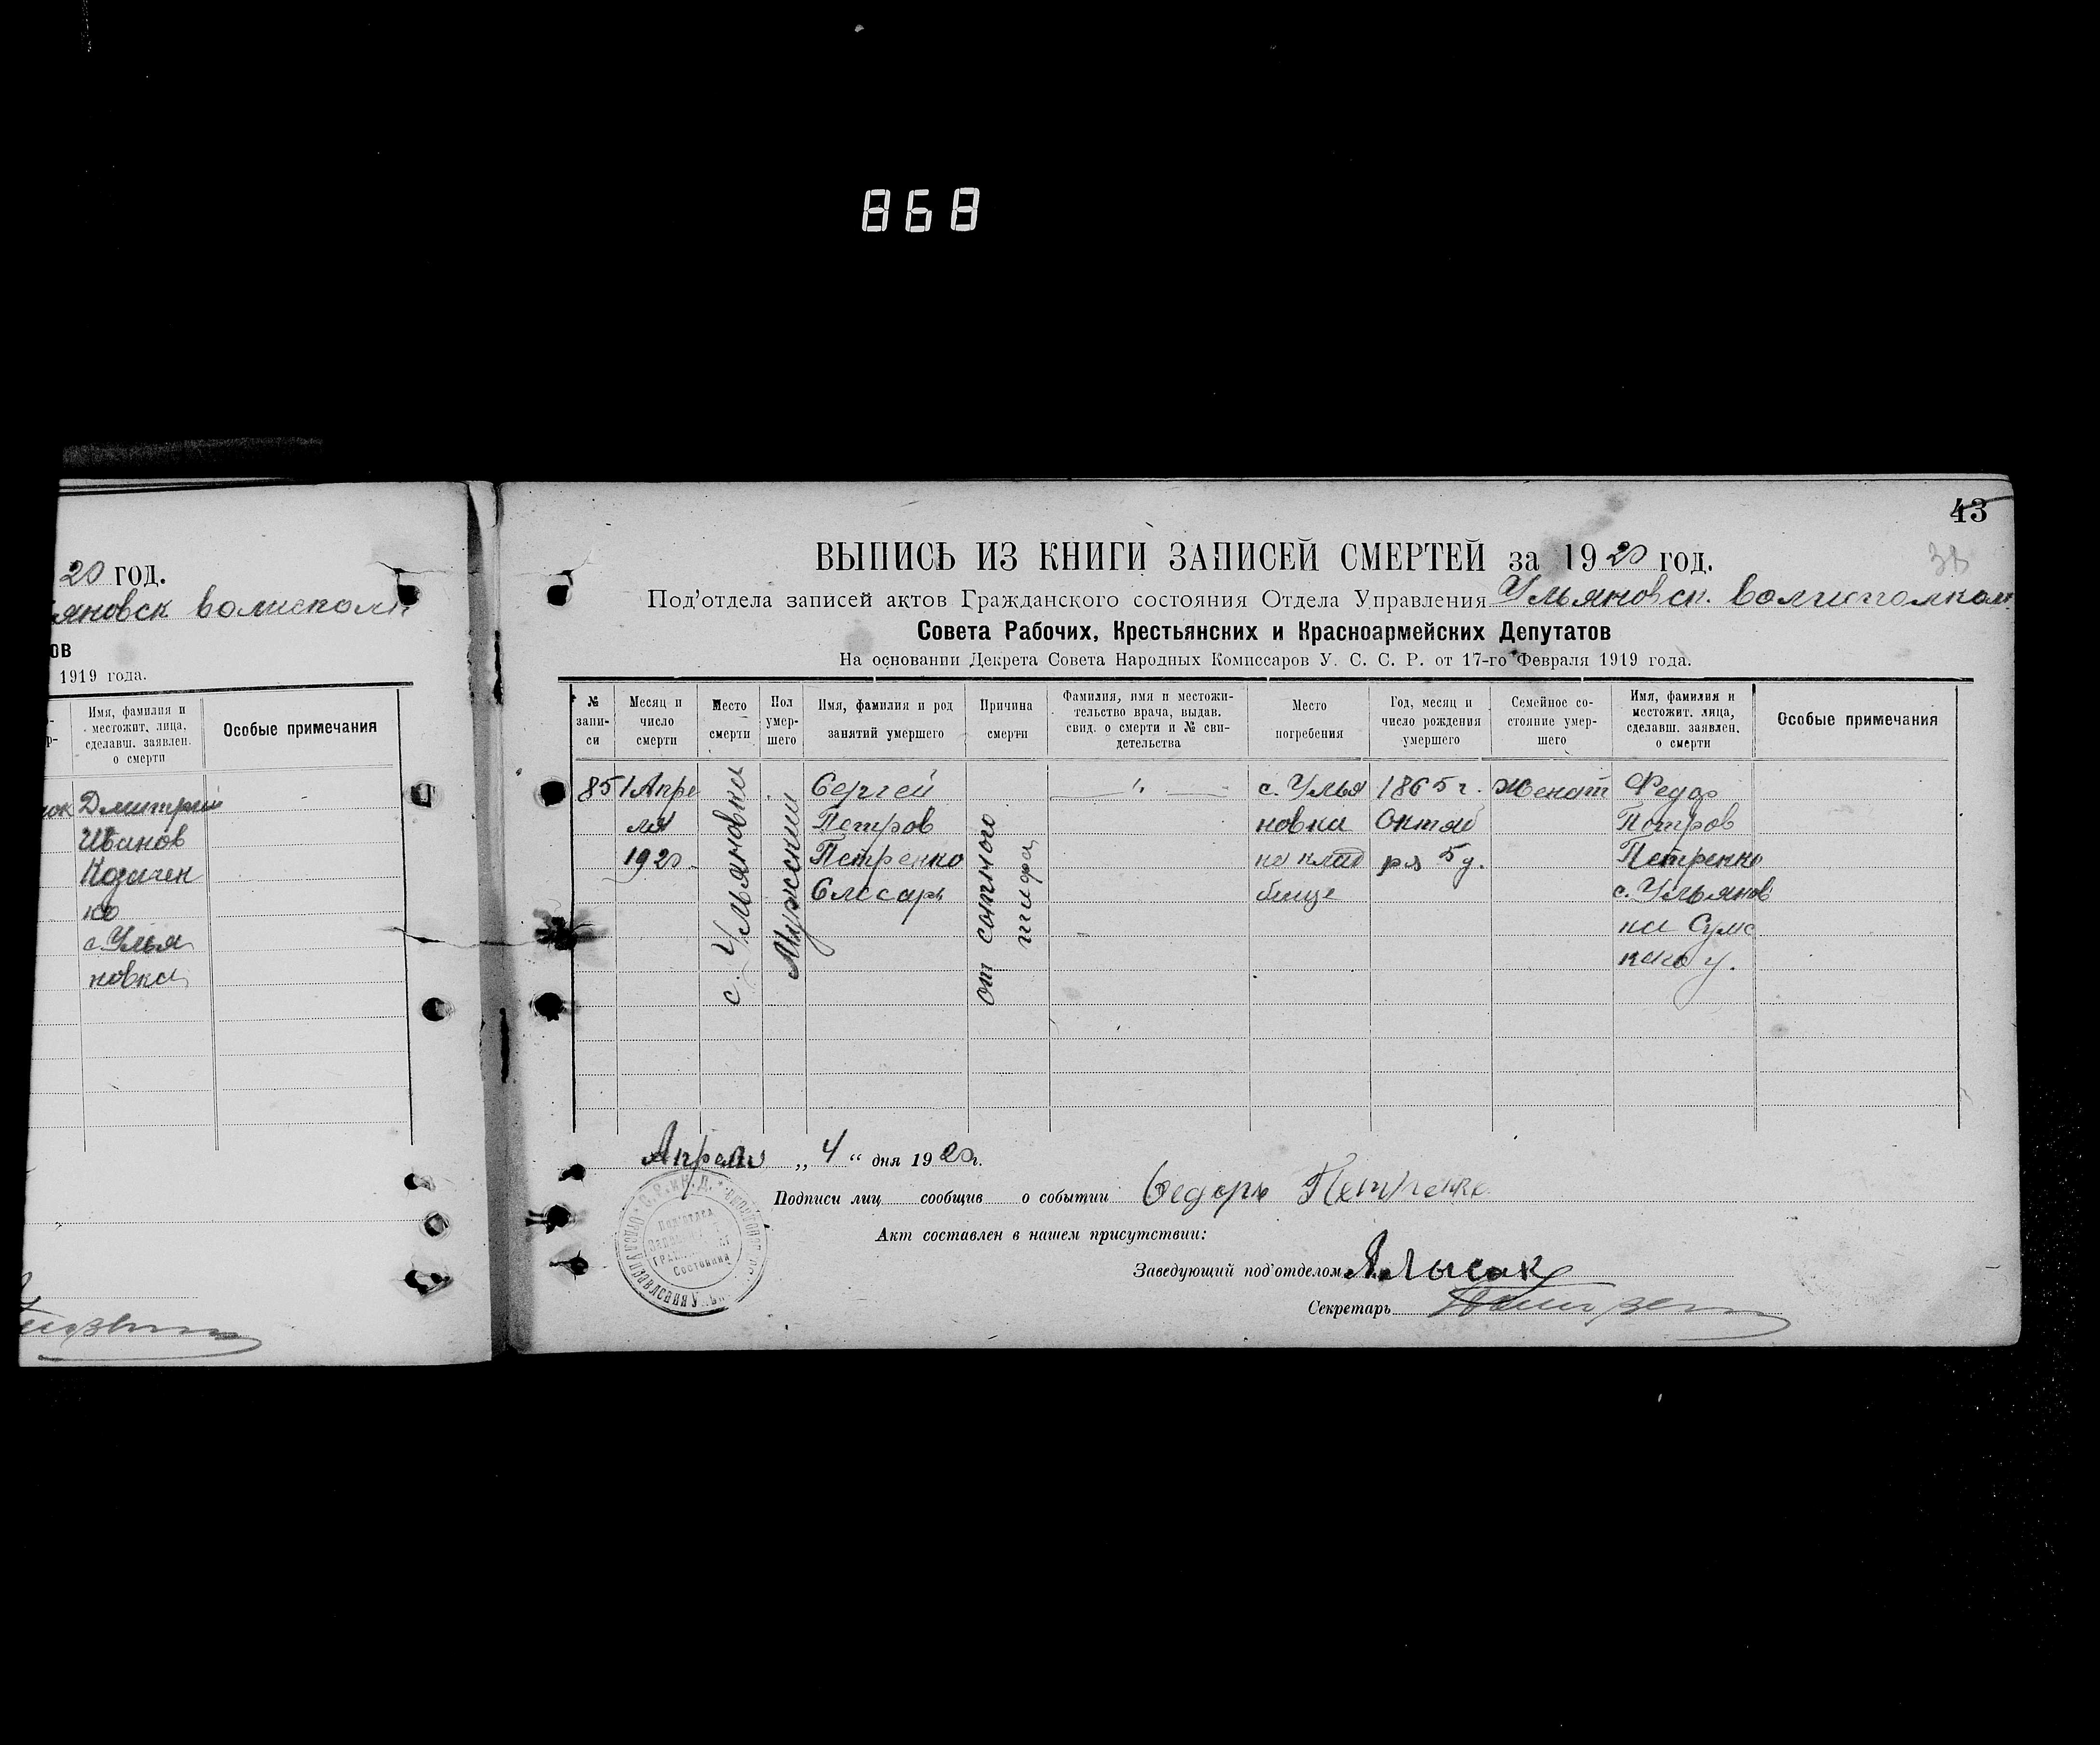 868
20 год.
яновск волисполк
ов
1919 года.
Имя, фамилия и
местожит. лица,
сделавш. заявлен.
о смерти
Особые примечания
Дмитрий
Иванов
Козачен
ко
с. Улья
новка
43
ВЫПИСЬ ИЗ КНИГИ ЗАПИСЕЙ СМЕРТЕЙ за 1920 год.
Под'отдела записей актов Гражданского состояния Отдела Управления Ульяновск. волисполком
Совета Рабочих, Крестьянских и Красноармейских Депутатов
На основании Декрета Совета Народных Комиссаров У. С. С. Р. от 17-го Февраля 1919 года.
№
запи-
си
Месяц и
число
смерти
Место
смерти
Пол
умер-
шего
Имя, фамилия и род
занятий умершего
Причина
смерти
Фамилия, имя и местожи-
тельство врача, выдав.
свид. о смерти и № сви-
детельства
Место
погребения
Год, месяц и
число рождения
умершего
Семейное со-
стояние умер-
шего
Имя, фамилия и
местожит. лица,
сделавш. заявлен.
о смерти
Особые примечания
85
1 Апре
ля
1920
с. Ульяновка
Мужский
Сергей
Петров
Петренко
Слесарь
от сапного
тифа
с. Улья
новка
на клад
бище
1865 г.
Октяб
ря 5 д.
Женат
Федор
Петров
Петренко
с. Ульянов
ка Сумс
каго у.
Апреля „4“ дня 1920 г.
Подписи лиц сообщив о событии Федоръ Петренко
Акт составлен в нашем присутствии:
Заведующий под'отделом А. Лысак
Секретарь
Под'отдел
Состояния